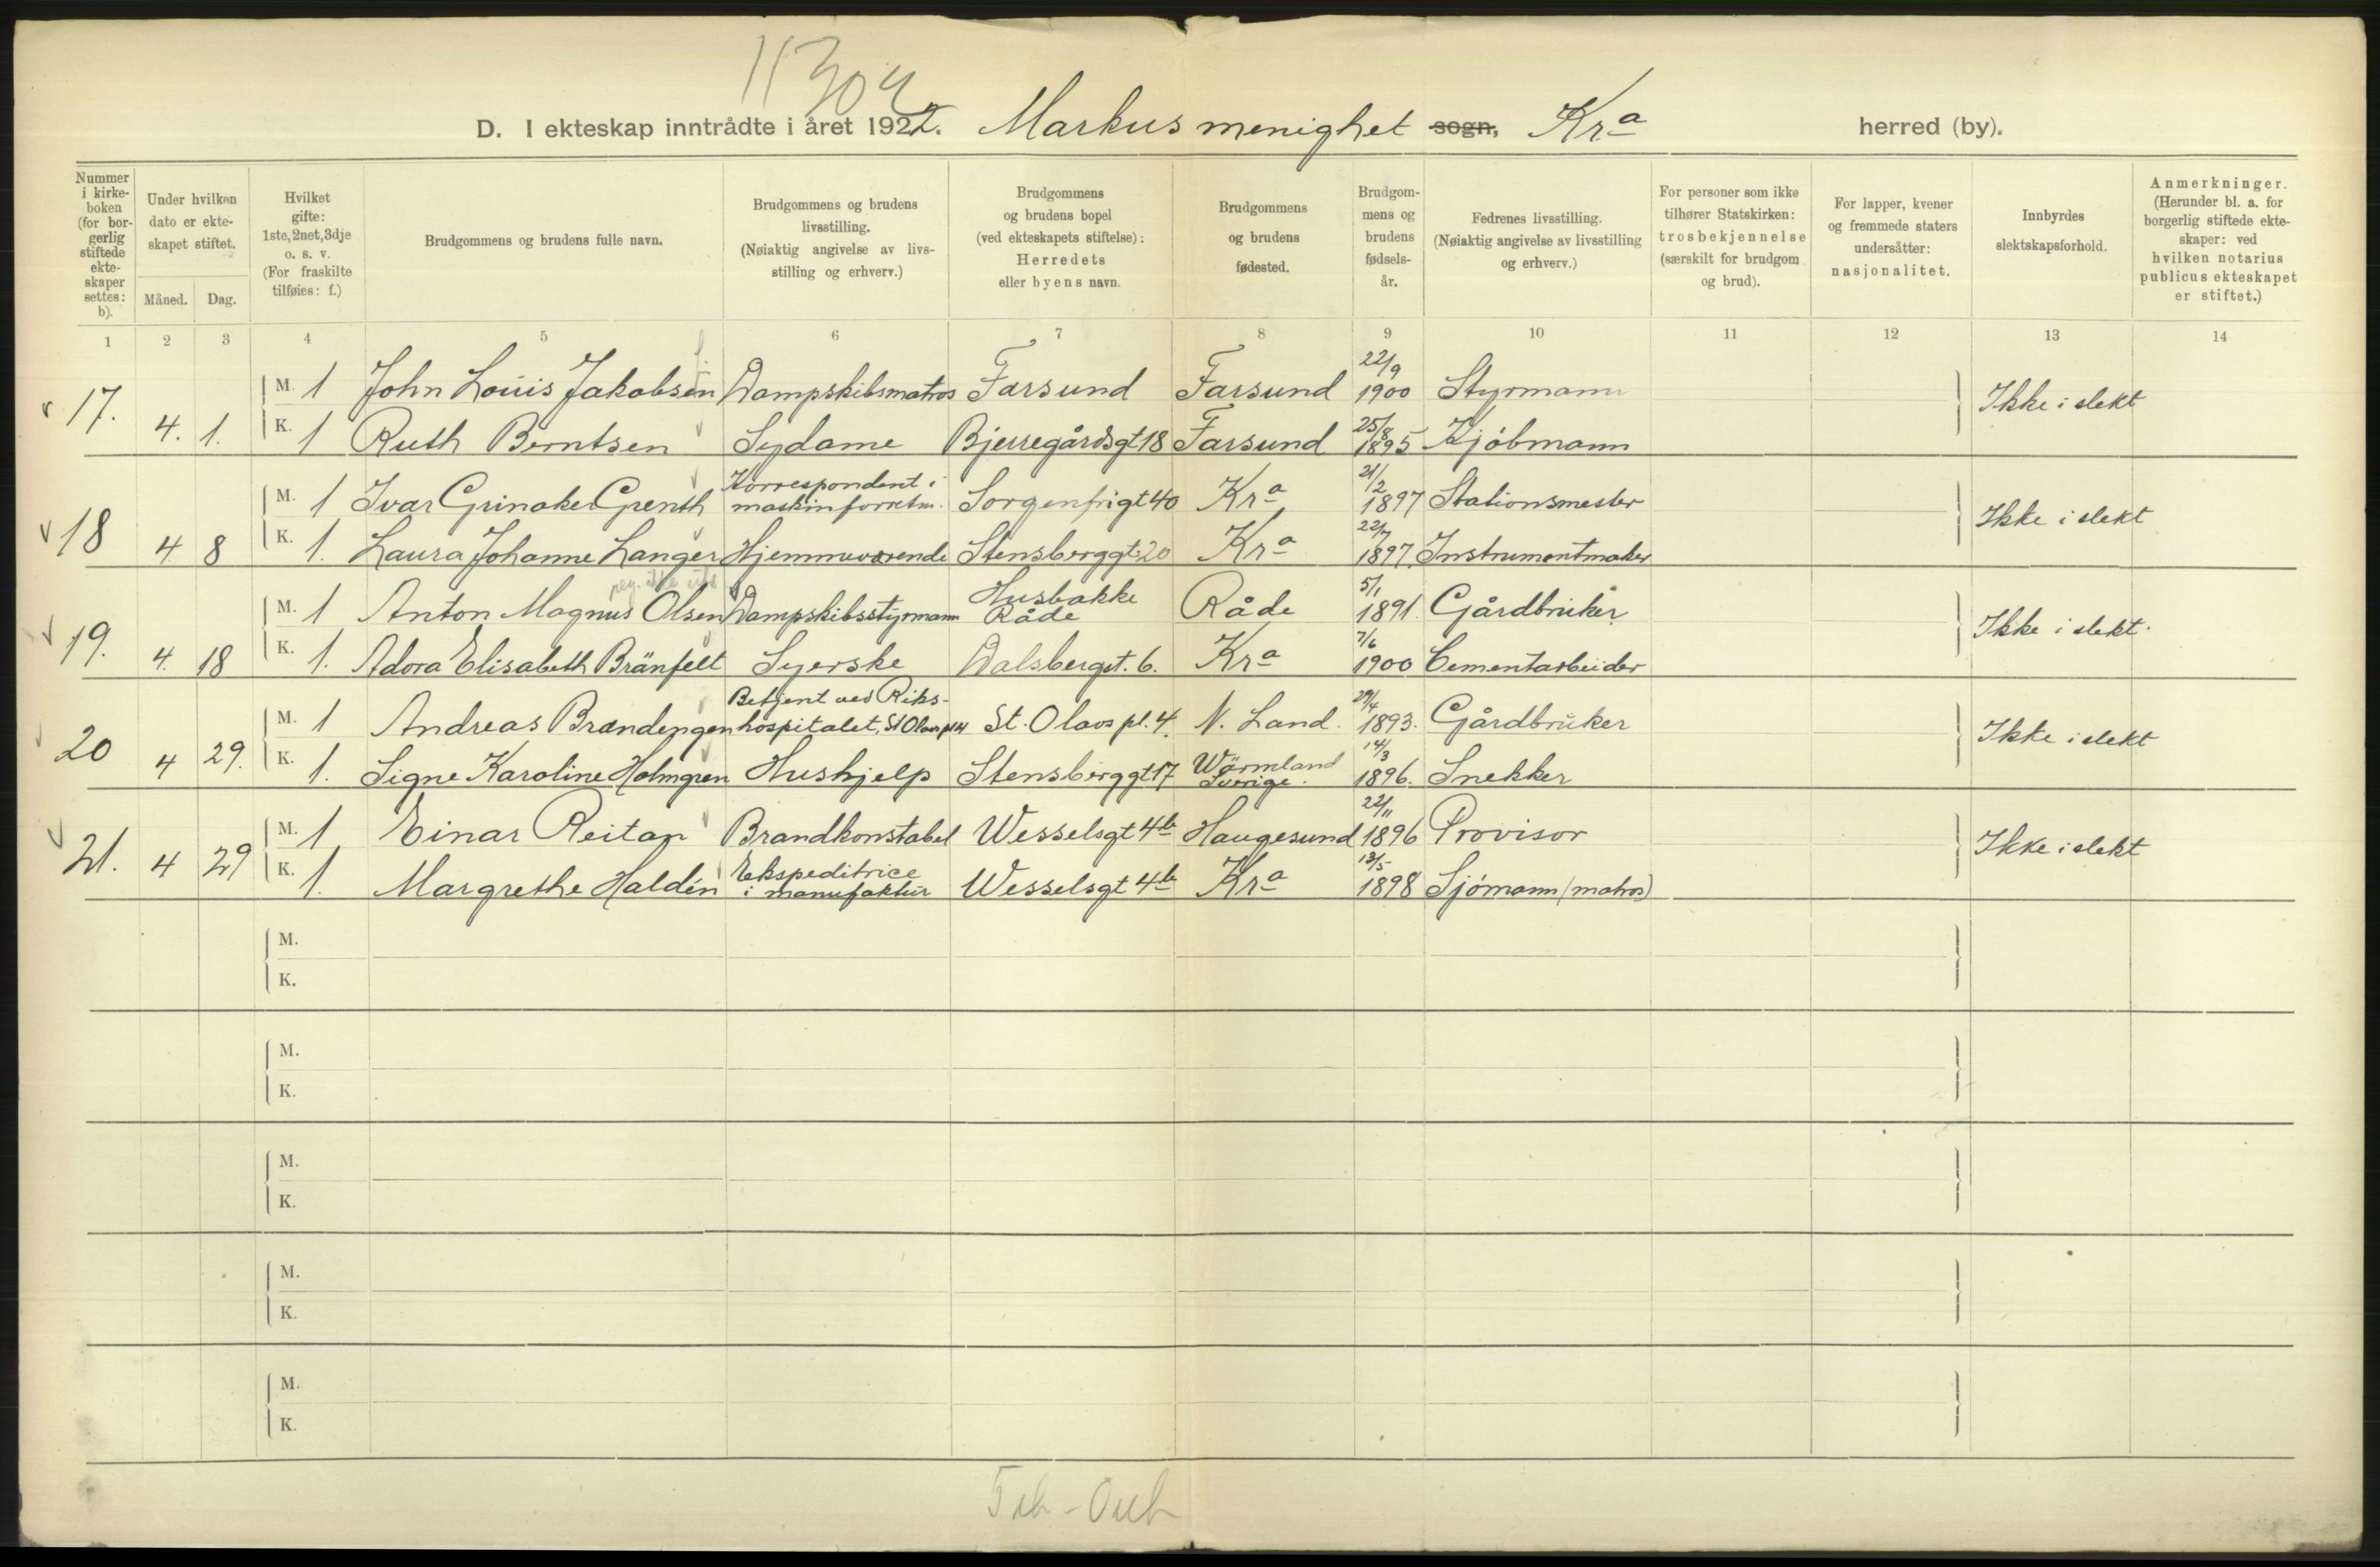 11304
D. I ekteskap inntrådte i året 1922. Markus menighet sogn, Kra herred (by).
Nummer i kirke-boken (for bor-gerlig stiftede ekte-skaper settes: b).
Under hvilken dato er ekte-skapet stiftet.
Måned. Dag.
Hvilket gifte: 1ste, 2net, 3dje o. s. v. (For fraskilte tilføies: f.)
Brudgommens og brudens fulle navn.
Brudgommens og brudens livsstilling. (Nøiaktig angivelse av livs-stilling og erhverv.)
Brudgommens og brudens bopel (ved ekteskapets stiftelse): Herredets eller byens navn.
Brudgommens og brudens fødested.
Brudgom-mens og brudens fødsels-år.
Fedrenes livsstilling. (Nøiaktig angivelse av livsstilling og erhverv.)
For personer som ikke tilhører Statskirken: trosbekjennelse (særskilt for brudgom og brud).
For lapper, kvener og fremmede staters undersåtter: nasjonalitet.
Innbyrdes slektskapsforhold.
Anmerkninger. (Herunder bl. a. for borgerlig stiftede ekte-skaper: ved hvilken notarius publicus ekteskapet er stiftet.)
1 2 3 4 5 6 7 8 9 10 11 12 13 14
17. 4. 1. M. 1 John Louis Jakobsen Dampskibsmatros Farsund Farsund 22/9 1900 Styrmann Ikke i slekt
K. 1 Ruth Berntsen Sydame Bjerregårdsgt 18 Farsund 25/8 1895 Kjöbmann
18 4 8 M. 1 Ivar Grinaker Grenth Korrespondent i maskinforretn. Sorgenfrigt 40 Kra 21/2 1897 Stationsmester Ikke i slekt
K. 1. Laura Johanne Langer Hjemmeværende Stensberggt. 20 Kra 22/7 1897 Instrumentmaker
19. 4. 18 M. 1 Anton Magnus Olsen Dampskibsstyrmann Husbakke Råde Råde 5/1 1891 Gårdbruker Ikke i slekt.
K. 1. Adora Elisabeth Bränfelt Syerske Dalsbergst. 6. Kra 7/6 1900 Cementarbeider
20 4 29. M. 1 Andreas Brændengen Betjent ved Riks-hospitalet, St Olavs pl 4 St. Olavs pl. 4. N. Land. 29/4 1893. Gårdbruker Ikke i slekt
K. 1. Signe Karoline Holmgren Hushjelp Stensberggt 17 Wärmland Sverige. 14/3 1896. Snekker
21. 4 29 M. 1 Einar Reitan Brandkonstabel Wesselsgt 4b Haugesund 22/11 1896 Provisor Ikke i slekt
K. 1. Margrethe Haldén Ekspeditrice i manufaktur Wesselsgt 4b Kra 13/5 1898 Sjömann (matros)
M.
K.
M.
K.
M.
K.
M.
K.
M.
K.